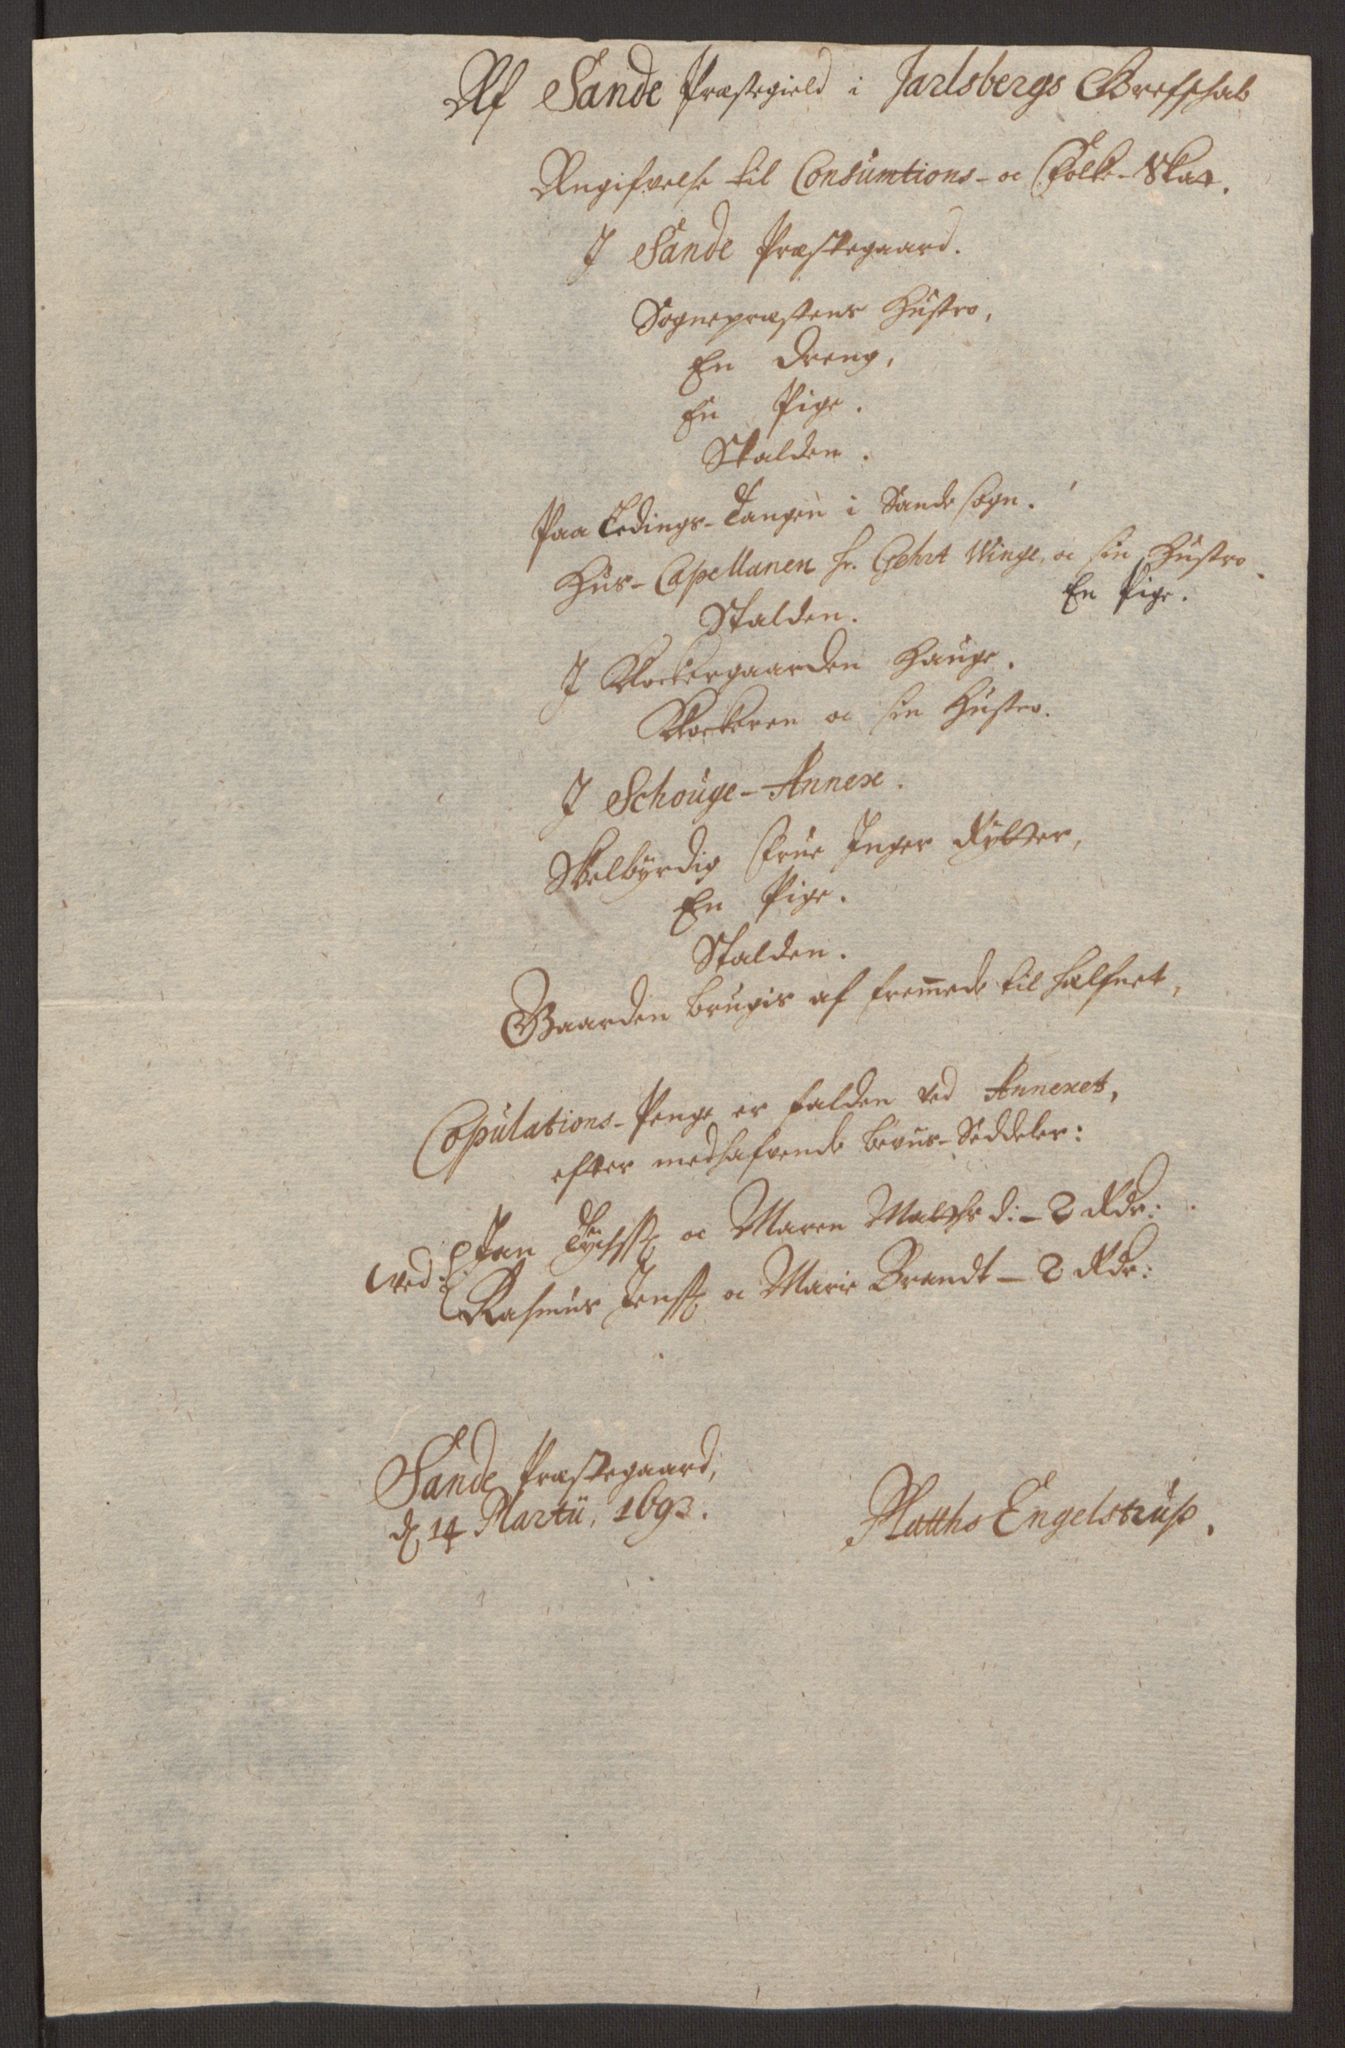 Af Sande Præstegield i Jarlsbergs Grefschab
Angifvelse til Consumtions- oc Folke-Skat.
J Sande Præstegaard.
Sognepræstens Hustro,
En Dreng,
En Pige.
Stalden.
Paa Tangen i Sande sogn.
Hus-Capellanen hr. Gehrt Winge, oc sin Hustro.
En Pige.
Stalden.
J Klockergaarden Hauge.
Klockeren oc sin Hustro.
J Schouge-Annex.
Velbyrdig Frue Inger Rytter,
En Pige.
Stalden.
Gaarden brugis af fremmede til halfnet,
Copulations-Penge er falden ved Annexet,
efter medhafvende bevis-Seddeler:
Ved: Jan oc Maren Matthsd: - 2 Rdr:
Rasmus Jenss: oc Marie Brandt - 2 Rdr:
Sande Præstegaard,
d. 14 Martii, 1693.
Matths Engelstrup.